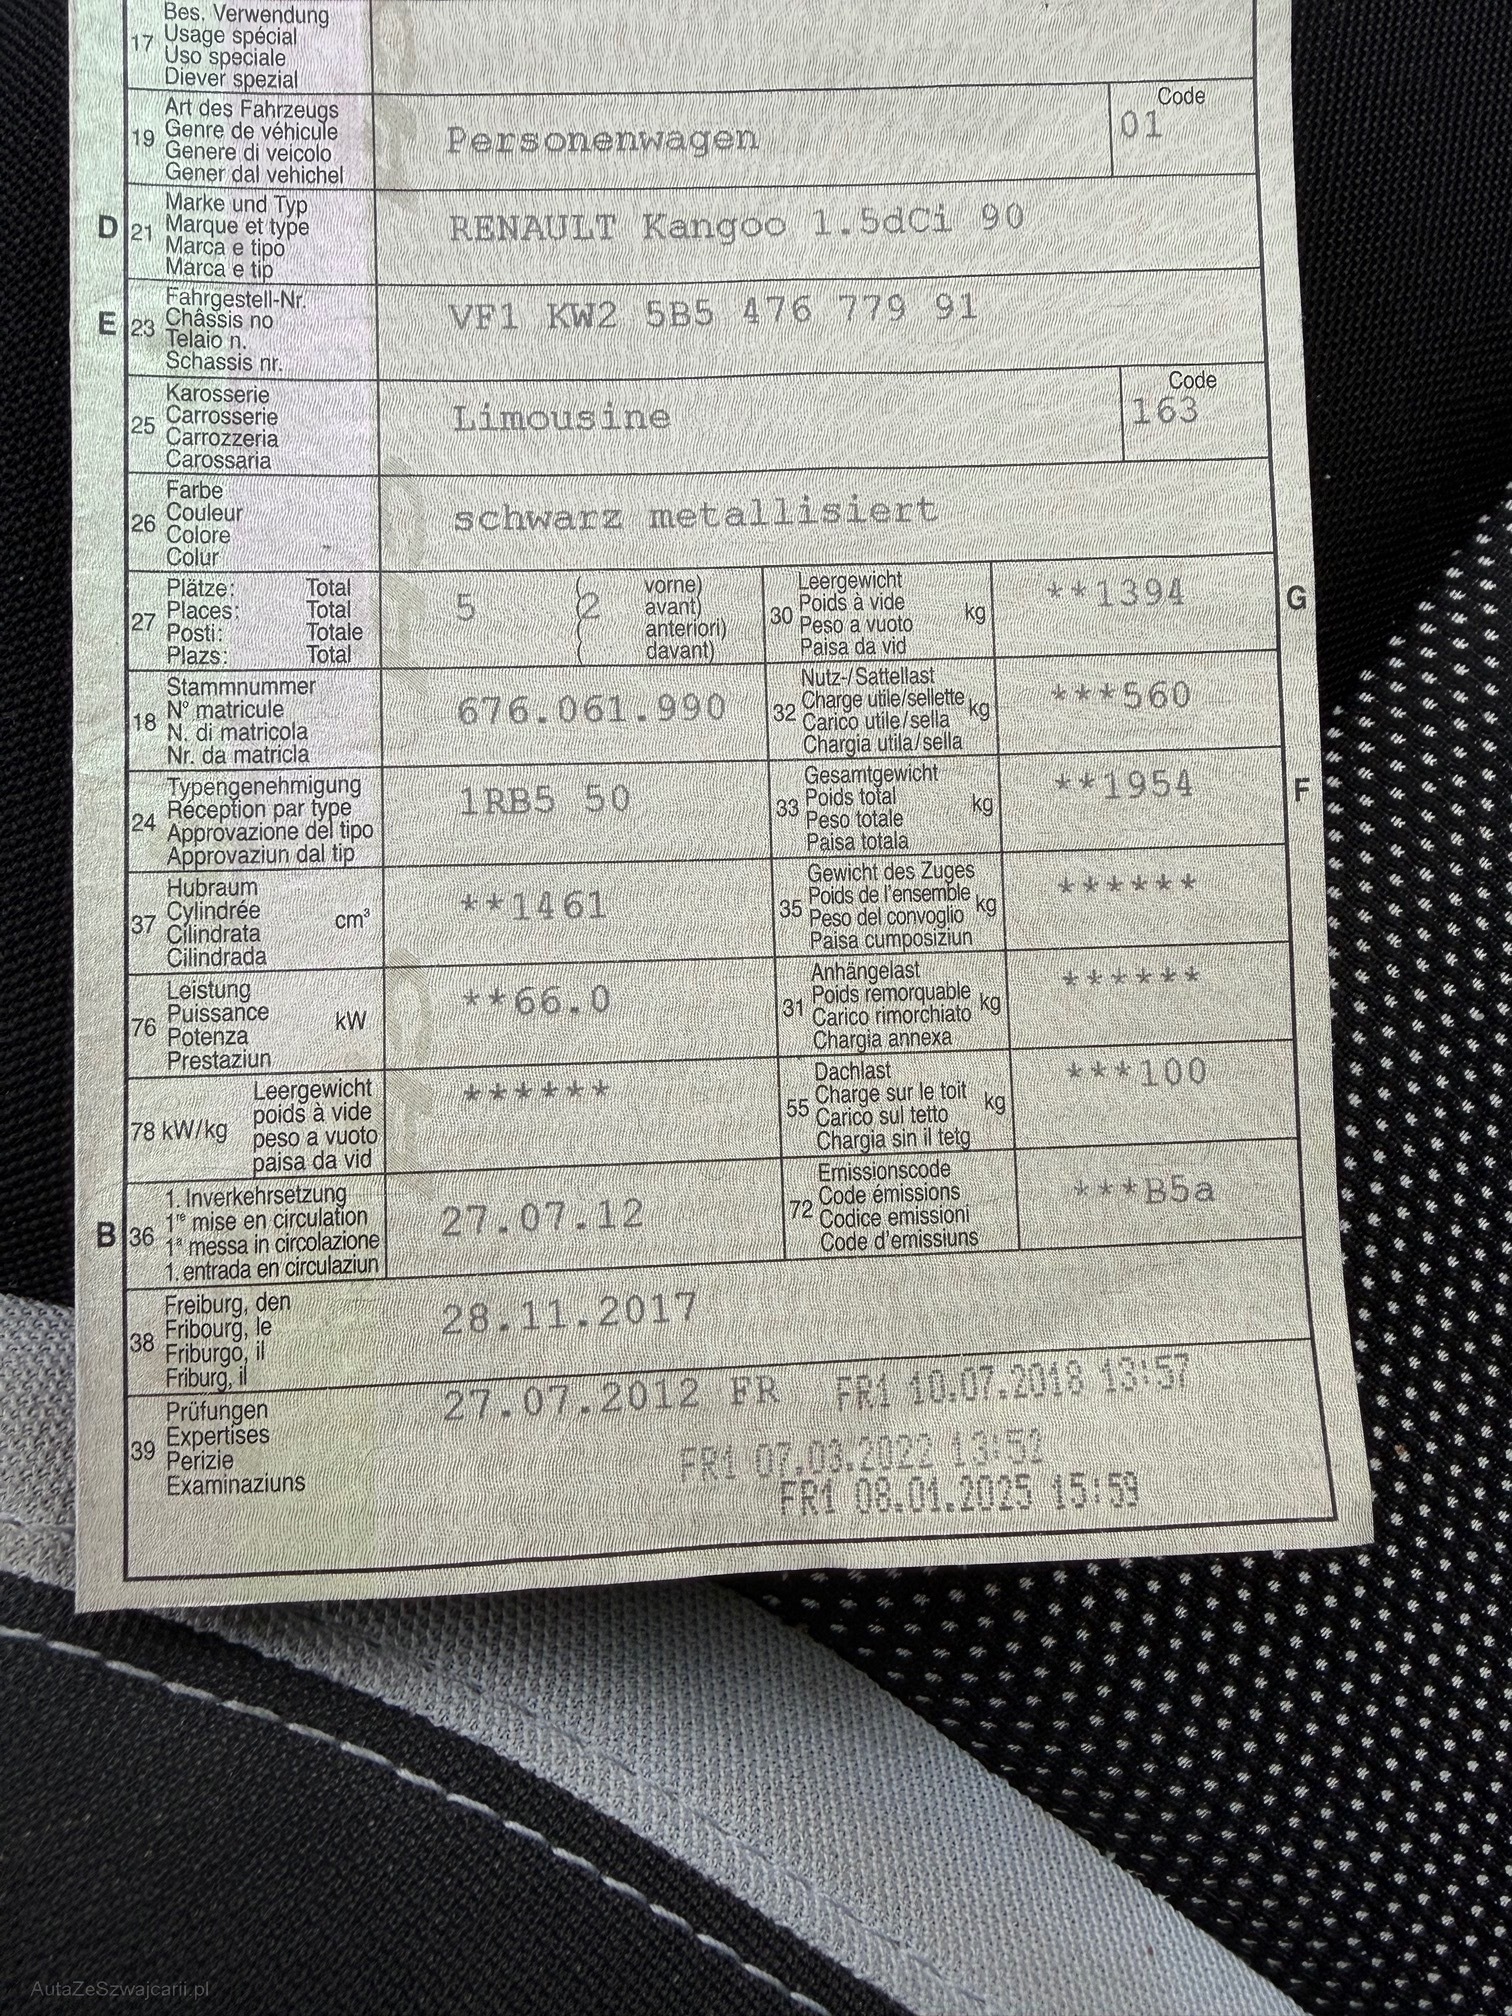 Bes. Verwendung
17 Usage spécial
Uso speciale
Diever spezial
Art des Fahrzeugs
19 Genre de véhicule
Genere di veicolo
Gener dal vehichel
Personenwagen
Code
01
D 21 Marke und Typ
Marque et type
Marca e tipo
Marca e tip
RENAULT Kangoo 1.5dCi 90
E 23 Fahrgestell-Nr.
Châssis no
Telaio n.
Schassis nr.
VF1 KW2 5B5 476 779 91
25 Karosserie
Carrosserie
Carrozzeria
Carossaria
Limousine
Code
163
26 Farbe
Couleur
Colore
Colur
schwarz metallisiert
27 Plätze: Total
Places: Total
Posti: Totale
Plazs: Total
5 (2 vorne)
( avant)
( anteriori)
( davant)
30 Leergewicht
Poids à vide kg
Peso a vuoto
Paisa da vid
**1394
G
18 Stammnummer
N° matricule
N. di matricola
Nr. da matricla
676.061.990
32 Nutz-/Sattellast
Charge utile/sellette kg
Carico utile/sella
Chargia utila/sella
***560
24 Typengenehmigung
Réception par type
Approvazione del tipo
Approvaziun dal tip
1RB5 50
33 Gesamtgewicht
Poids total kg
Peso totale
Paisa totala
**1954
F
37 Hubraum
Cylindrée cm³
Cilindrata
Cilindrada
**1461
35 Gewicht des Zuges
Poids de l'ensemble kg
Peso del convoglio
Paisa cumposiziun
******
76 Leistung
Puissance kW
Potenza
Prestaziun
**66.0
31 Anhängelast
Poids remorquable kg
Carico rimorchiato
Chargia annexa
******
78 kW/kg Leergewicht
poids à vide
peso a vuoto
paisa da vid
******
55 Dachlast
Charge sur le toit kg
Carico sul tetto
Chargia sin il tetg
***100
B 36 1. Inverkehrsetzung
1re mise en circulation
1a messa in circolazione
1. entrada en circulaziun
27.07.12
72 Emissionscode
Code émissions
Codice emissioni
Code d'emissiuns
***B5a
38 Freiburg, den
Fribourg, le
Friburgo, il
Friburg, il
28.11.2017
39 Prüfungen
Expertises
Perizie
Examinaziuns
27.07.2012 FR FR1 10.07.2018 13:57
FR1 07.03.2022 13:52
FR1 08.01.2025 15:59
AutaZeSzwajcarii.pl